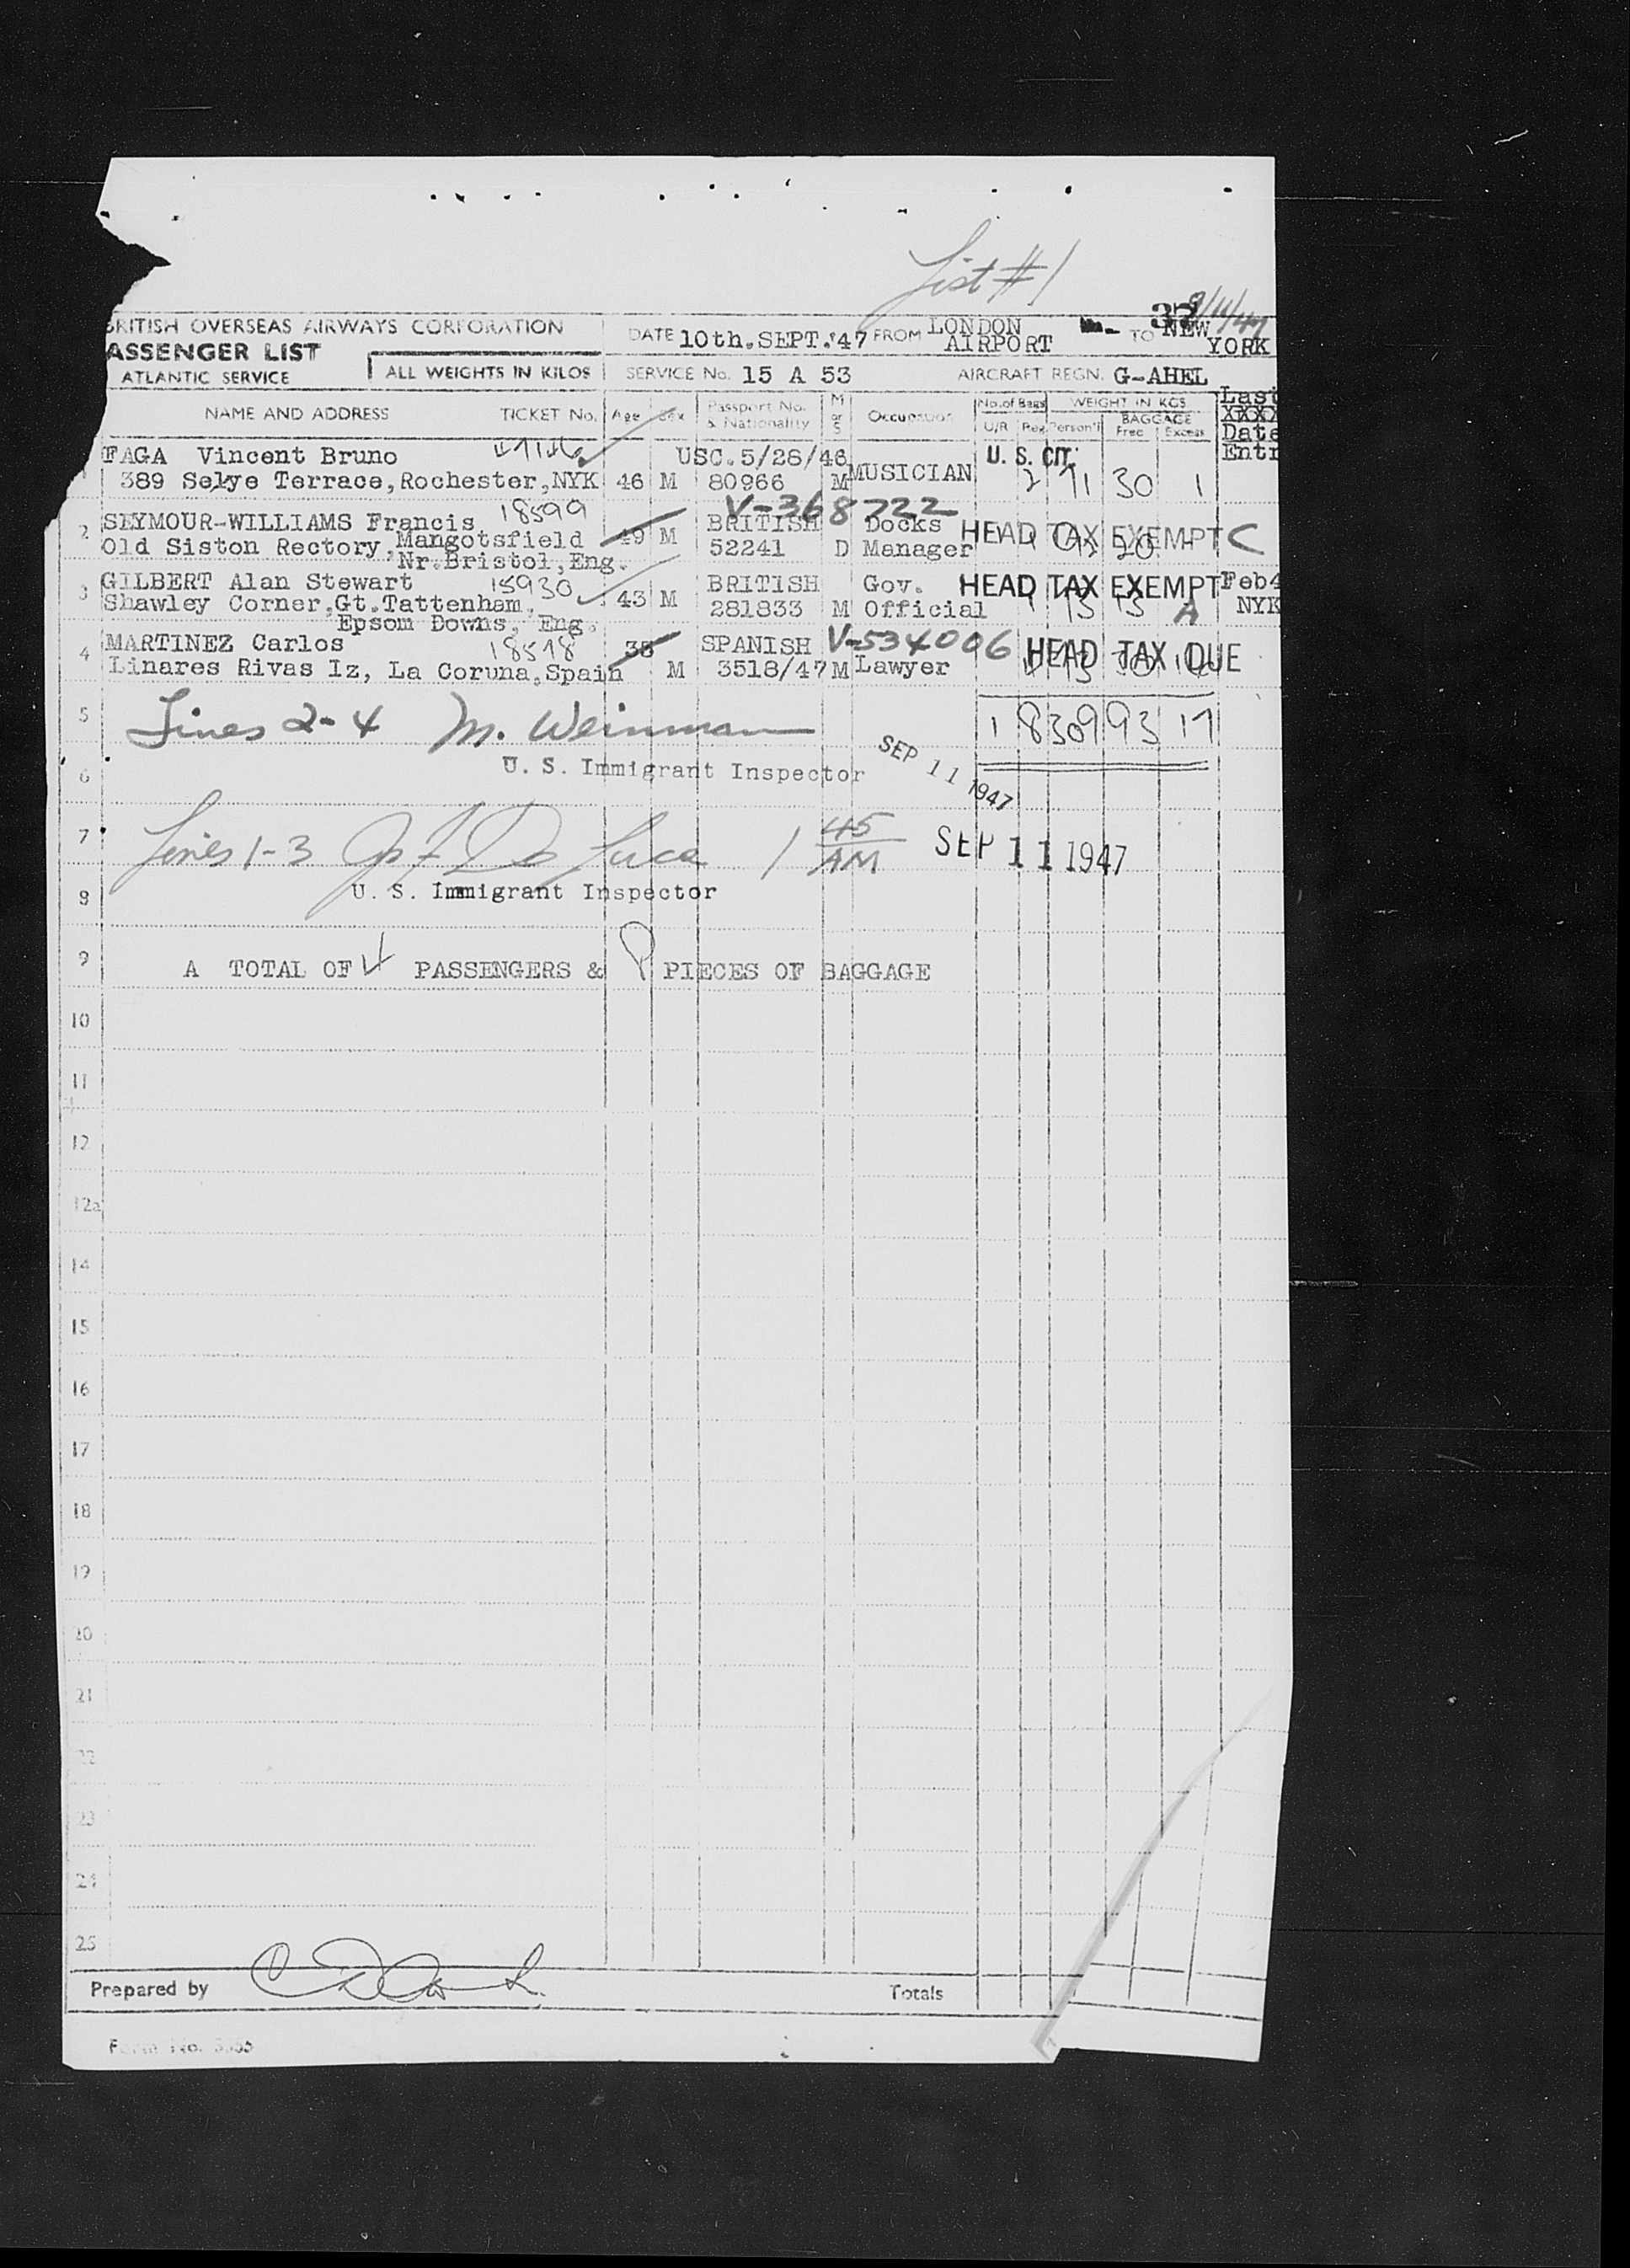 List #1
9/11/47
BRITISH OVERSEAS AIRWAYS CORPORATION
DATE 10th. SEPT.'47 FROM LONDON AIRPORT TO NEW YORK
ASSENGER LIST
ATLANTIC SERVICE
ALL WEIGHTS IN KILOS
SERVICE No. 15 A 53
AIRCRAFT REGN. G-AHEL
NAME AND ADDRESS TICKET No. Age Sex Passport No. & Nationality M or S Occupation No. of Bags U/R Reg. WEIGHT IN KGS Person'l BAGGAGE Free Excess Last XXXX Date Entr
FAGA Vincent Bruno USC. 5/28/46 U. S. CIT.
389 Selye Terrace, Rochester, NYK 46 M 80966 M MUSICIAN 2 71 30 1
V-368722
2 SEYMOUR-WILLIAMS Francis 18599 49 M BRITISH Docks HEAD TAX EXEMPT C
Old Siston Rectory, Mangotsfield 52241 D Manager
Nr. Bristol, Eng.
3 GILBERT Alan Stewart 15930 43 M BRITISH Gov. HEAD TAX EXEMPT Feb4
Shawley Corner, Gt. Tattenham, 281833 M Official A NYK
Epsom Downs, Eng.
4 MARTINEZ Carlos 18518 SPANISH V-534006 HEAD TAX DUE
Linares Rivas Iz, La Coruna, Spain M 3518/47 M Lawyer
5 Lines 2-4 M. Weinman 1 8 309 93 17
6 U. S. Immigrant Inspector SEP 11 1947
7 Lines 1-3 De Luca 1 45 AM SEP 11 1947
8 U. S. Immigrant Inspector
9 A TOTAL OF 4 PASSENGERS & 9 PIECES OF BAGGAGE
10
11
12
12a
14
15
16
17
18
19
20
21
22
23
24
25
Prepared by Totals
Form No.